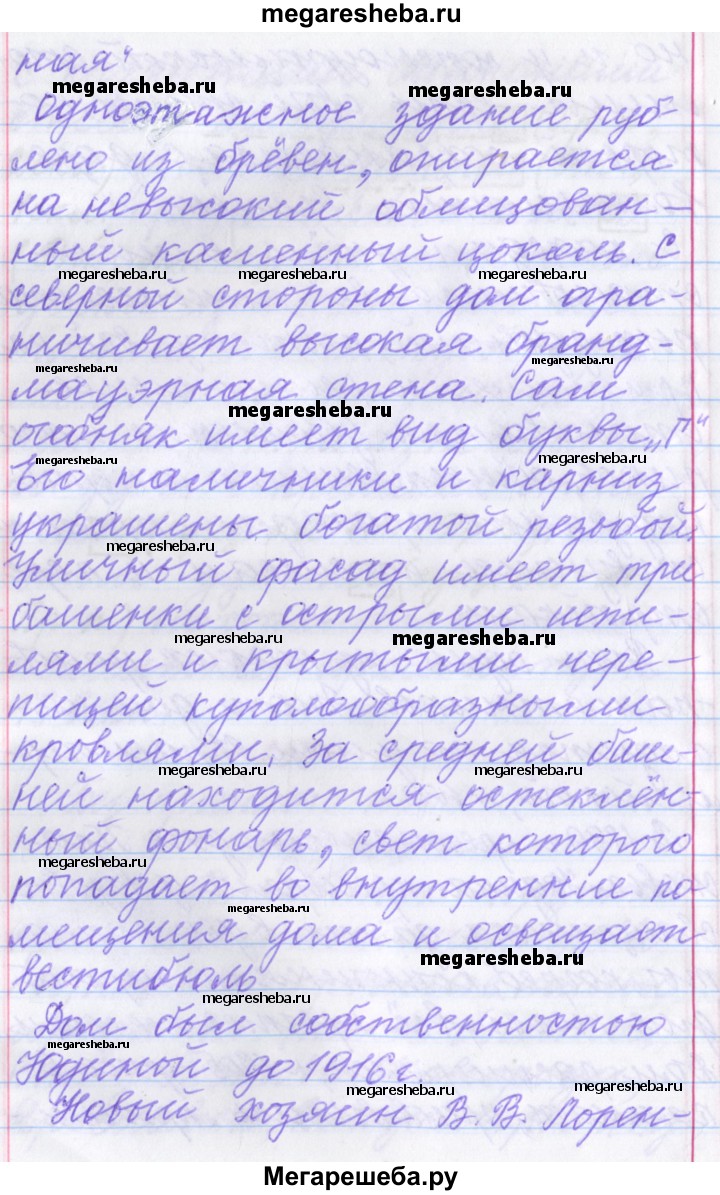 megaresheba.ru
ная"
megaresheba.ru
megaresheba.ru
Одноэтажное здание руб-
лено из брёвен, опирается
на невысокий облицован-
ный каменный цоколь. С
megaresheba.ru megaresheba.ru megaresheba.ru
северной стороны дом огра-
ничивает высокая бранд-
megaresheba.ru megaresheba.ru
мауэрная стена. Сам
megaresheba.ru
особняк имеет вид буквы „Г"
megaresheba.ru megaresheba.ru
Его наличники и карниз
украшены богатой резьбой.
megaresheba.ru
Уличный фасад имеет три
башенки с острыми шпи-
megaresheba.ru megaresheba.ru
лями и крытыми чере-
пицей куполообразными
кровлями. За средней баш-
megaresheba.ru megaresheba.ru
ней находится остеклён-
ный фонарь, свет которого
megaresheba.ru
попадает во внутренние по
megaresheba.ru
мещения дома и освещает
megaresheba.ru
вестибюль
megaresheba.ru
Дом был собственностью
megaresheba.ru
Юдиной до 1916 г.
megaresheba.ru megaresheba.ru
Новый хозяин В. В. Лорен-
Мегарешеба.ру